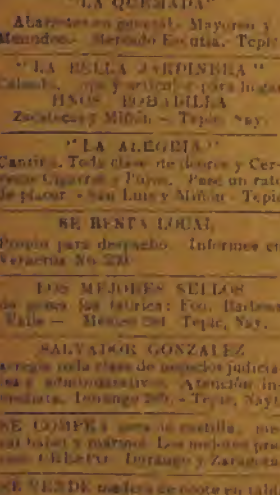 "LA QUEMADA"
Abarrotes en general. Mayoreo y
Menudeo. Mercado Tepic
"LA BELLA JARDINERA"
Calzado, ropa y artículos para hogar
HNOS. BOBADILLA
Zacatecas y Miñón. - Tepic, Nay.
"LA ALEGRIA"
Cantina. Toda clase de licores y Cer-
vezas Cigarros y Puros. Pase un rato
de placer - San Luis y Miñón - Tepic
SE RENTA LOCAL
Propio para despacho. Informes en
Veracruz No.
LOS MEJORES SELLOS
de goma los fabrica: Fco. Barbosa
Valle — México Tepic, Nay.
SALVADOR GONZALEZ
arregla toda clase de negocios judicia-
les y administrativos. Atención in-
mediata. Durango - Tepic, Nay.
SE COMPRA cera de castilla,
y Los mejores pre-
cios. Durango y Zaragoza
SE VENDE madera de